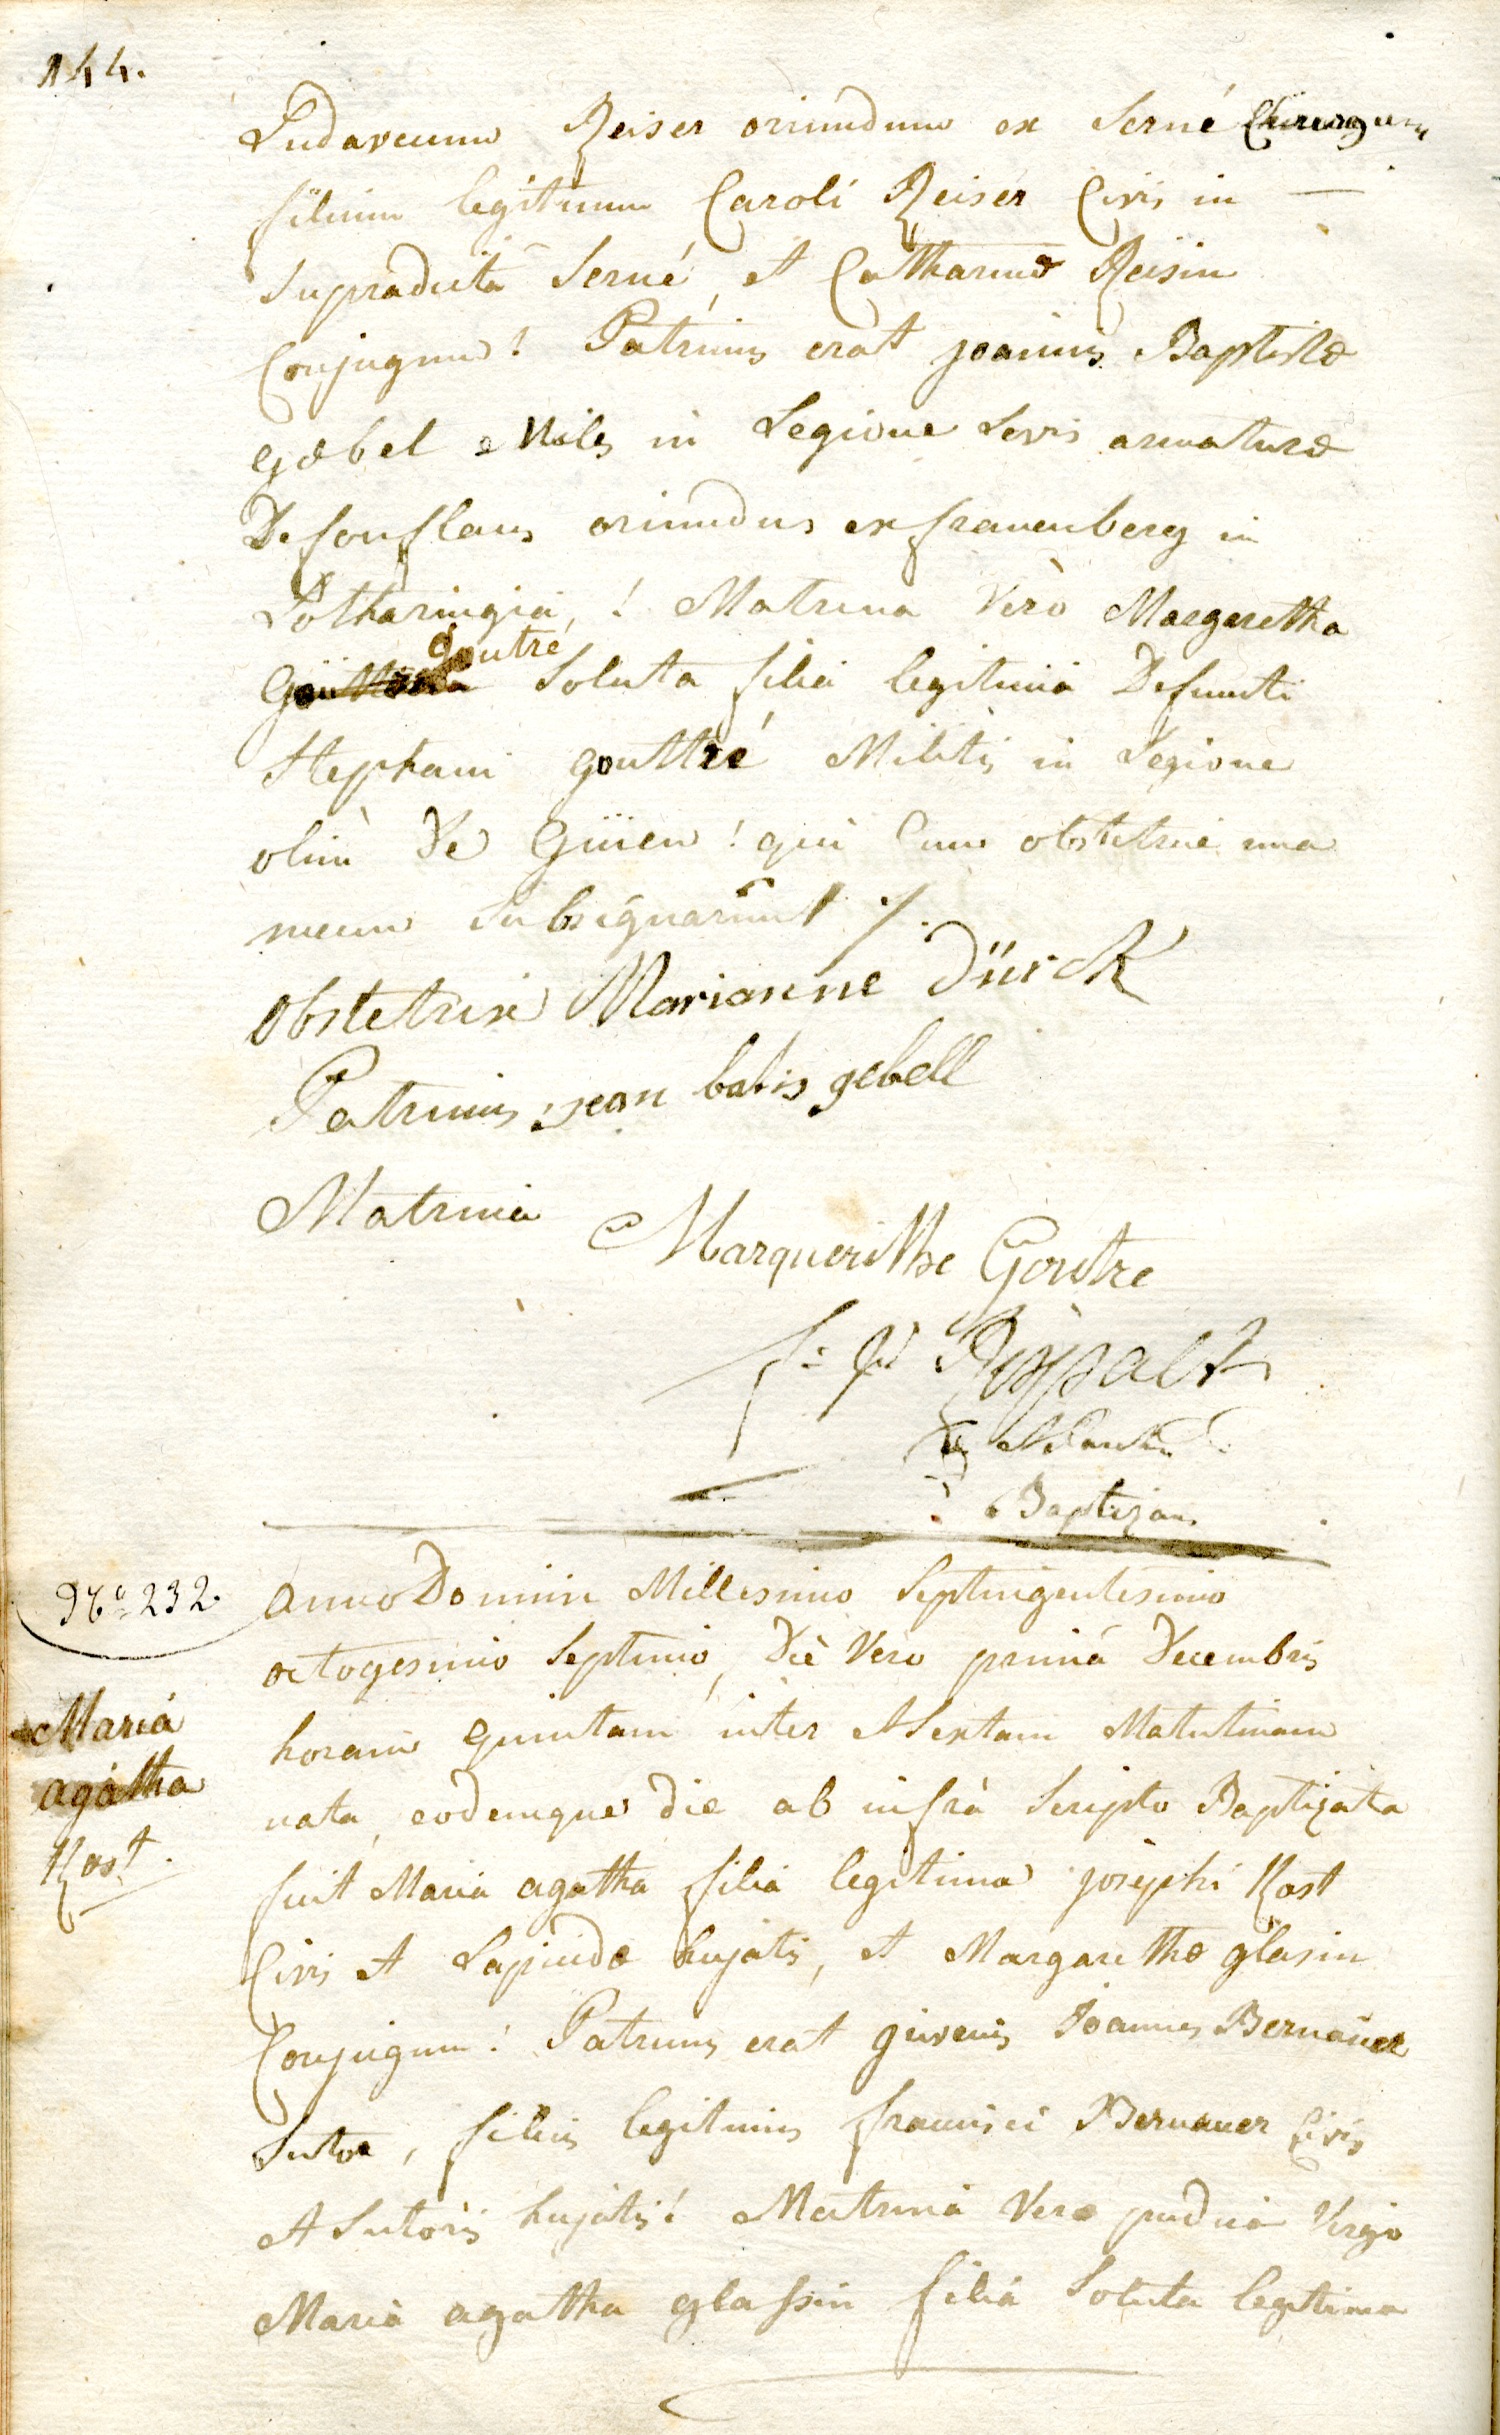 144.
Ludovicum Reiser oriundum ex Serné Chirurgum
filium legitimum Caroli Reiser Civis in —
Supradicta Serné, et Catharinæ Reisin
Conjugum! Patrinus erat joannes Baptista
gœbel Miles in Legione Levis armaturæ
oriundus ex frauenberg in
Lotharingia,! Matrina vero Margaretha
goutré
Soluta filia legitima Defuncti
Stephani gouttré Militis in Legione
olim De Güien! qui Cum obstetrice una
mecum subsignarunt ./.
obstetrix Marianne Dürck
Patrinus jean batis gebell
Matrina Marguerithe Goutre
Baptizans
No 232.
Maria
agatha
Kost.
anno Domini Millesimo Septingentesimo
octogesimo Septimo, Die Vero prima Decembris
horam quintam inter et Sextam Matutinam
nata, eodemque die ab infrà Scripto Baptizata
fuit Maria agatha filia legitima josephi Kost
Civis et Lapicidæ hujatis, et Margarethæ glasin
Conjugum! Patrinus erat juvenis Joannes Bernauer
Sutor, filius legitimus francisci Bernauer Civis
et Sutoris hujatis! Matrina Vero pudica Virgo
Maria agatha glassin filia Soluta legitima